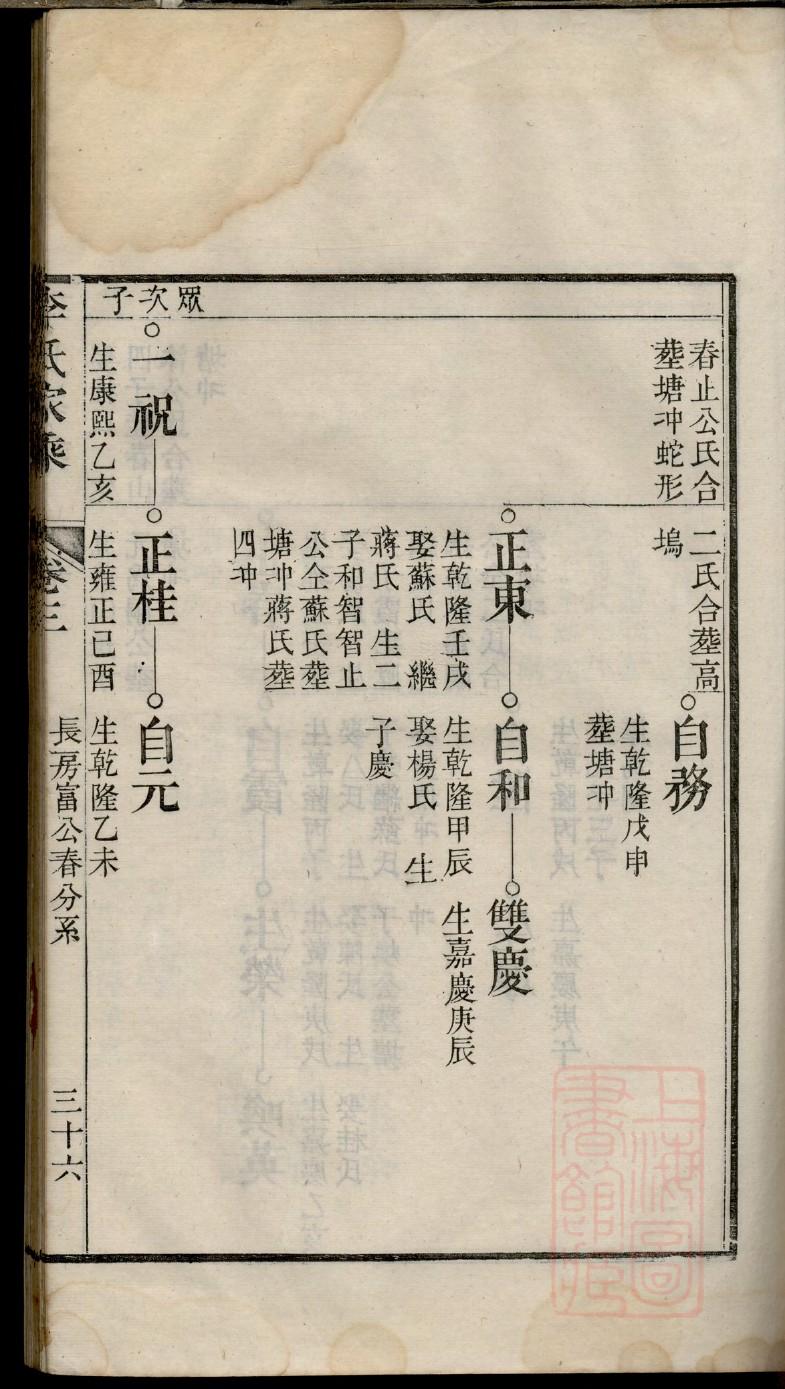 春止公氏合
塟塘冲蛇形
二氏合塟高
塢
自務
生乾隆戊申
塟塘冲
正東
生乾隆壬戌
娶蘇氏 繼
蔣氏 生二
子和智智止
公仝蘇氏塟
塘冲蔣氏塟
四冲
自和
生乾隆甲辰
娶楊氏 生
子慶
雙慶
生嘉慶庚辰
眾次子
一祝
生康熙乙亥
正桂
生雍正己酉
自元
生乾隆乙未
李氏家乘 卷三
長房富公春分系
三十六
上海圖書館藏